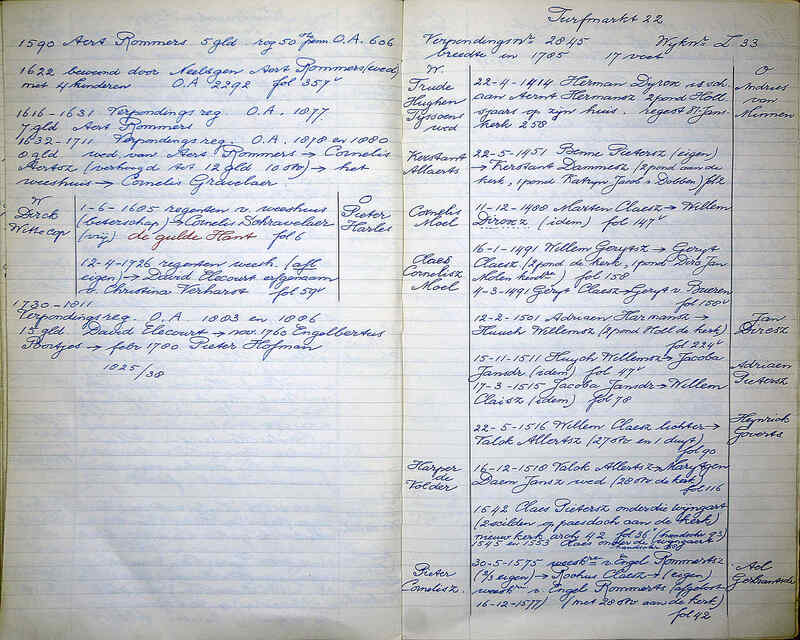 1590 Aert Rommers 5 gld rog 50 O.A. 606
1622 bewoond door Neeltgen Aert Rommers (wed)
met 4 kinderen O.A 2292 fol 357v
1616-1631 Verpondingsreg. O.A. 1877
7 gld Aert Rommers
1632-1711 Verpondingsreg. O.A. 1878 en 1880
8 gld wed. van Aert Rommers → Cornelis
Aertsz (verhoogd tot 12 gld 10 stv) → het
weeshuis → Cornelis Gravelaer.
W
Dirck
Wittecop
1-6-1685 regenten v. weeshuis
(beterschap) → Cornelis Schravelaer
(vrij) de gulde Hant fol 6
12-4-1726 regenten weesh. (afl
eigen) → David Elcourt erfgenaam
v. Christina Verharst fol 59v
O
Pieter
Harles
1730-1811
Verpondingsreg. O.A. 1883 en 1886
15 gld David Elcourt → nov. 1760 Engelbertus
Poortjes → febr 1780 Pieter Hofman
1825/38
Turfmarkt 22
Verpondingsnr. 2845 Wijknr. L 33
breedte in 1785 17 voet
W.
Trude
Hughen
Tijssoens
wed
22-4-1414 Herman Dyrox is sch
aan Aernt Hermansz 2 pond Holl
sjaars op zijn huis. regest St Jans-
kerk 258
O
Andries
van
Minnen
Kerstant
Allaerts
22-5-1451 Pieters (eigen)
→ Kerstant Dammesz (2 pond aan de
kerk, 1 pond Katryn Jacob v Dobben) fol 2
Cornelis
Moel
11-12-1488 Marten Claesz → Willem
Dircxz (idem) fol 147v
Claes
Cornelisz
Moel
16-1-1491 Willem Gerytsz → Geryt
Claesz (2 pond de kerk, 1 pond Dirc Jan
fol 158
4-3-1491 Geryt Claesz → Geryt v. Baeren
fol 158v
12-2-1501 Adriaen Harmansz →
Huuch Willemsz (2 pond Holl de kerk)
fol 224v
Jan
Dircsz
15-11-1511 Huych Willemsz → Jacoba
Jansdr (idem) fol 47v
17-3-1515 Jacoba Jansdr → Willem
Claisz (idem) fol 78
Adriaen
Pietersz
22-5-1516 Willem Claesz lichter →
Valok Allertsz (27 stv en 1 duyt)
fol 90
Heynrick
Goverts
Harper
de
Volder
16-12-1518 Valok Allertsz → Marytgen
Daem Jansz wed (28 stv de kerk)
fol 116
1542 Claes Pietersz onder die wijngart
(2 scilden op paesdach aan de kerk)
nieuwkerk arch 42 fol 36
1545 en 1553 Claes onder de wijngaert
Pieter
Cornelisz.
30-5-1575 weesk v. Engel Rommertsz
(2/3 eigen) → Rochus Claesz → (eigen)
weesk v. Engel Rommerts (afgelost
16-12-1577) (met 28 stv aan de kerk)
fol 42
Ad
Gerbrantsde